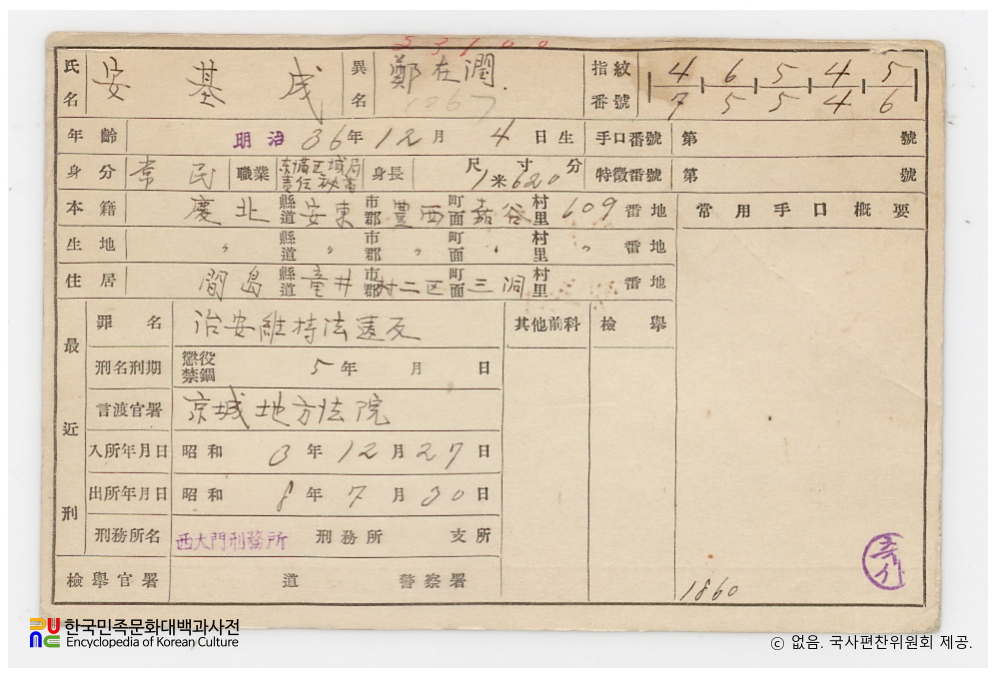 53100
氏名 安基成 異名 鄭在潤 1067 指紋番號 4 6 5 4 5 / 7 5 5 4 6
年齡 明治 36年 12月 4日生 手口番號 第 號
身分 常民 職業 区域局責任秘書 身長 尺寸分 1米620 特徵番號 第 號
本籍 慶北 縣道 安東 市郡 豊西 町面 嘉谷 村里 609 番地 常用手口概要
生地 〃 縣道 〃 市郡 〃 町面 〃 村里 〃 番地
住居 間島 縣道 竜井 市郡 村二区 町面 三洞 村里 番地
最近刑
罪名 治安維持法違反 其他前科 檢擧
刑名刑期 懲役禁錮 5年 月 日
言渡官署 京城地方法院
入所年月日 昭和 3年 12月 27日
出所年月日 昭和 8年 7月 30日
刑務所名 西大門刑務所 刑務所 支所
檢擧官署 道 警察署
1860
한국민족문화대백과사전
Encyclopedia of Korean Culture
ⓒ 없음. 국사편찬위원회 제공.